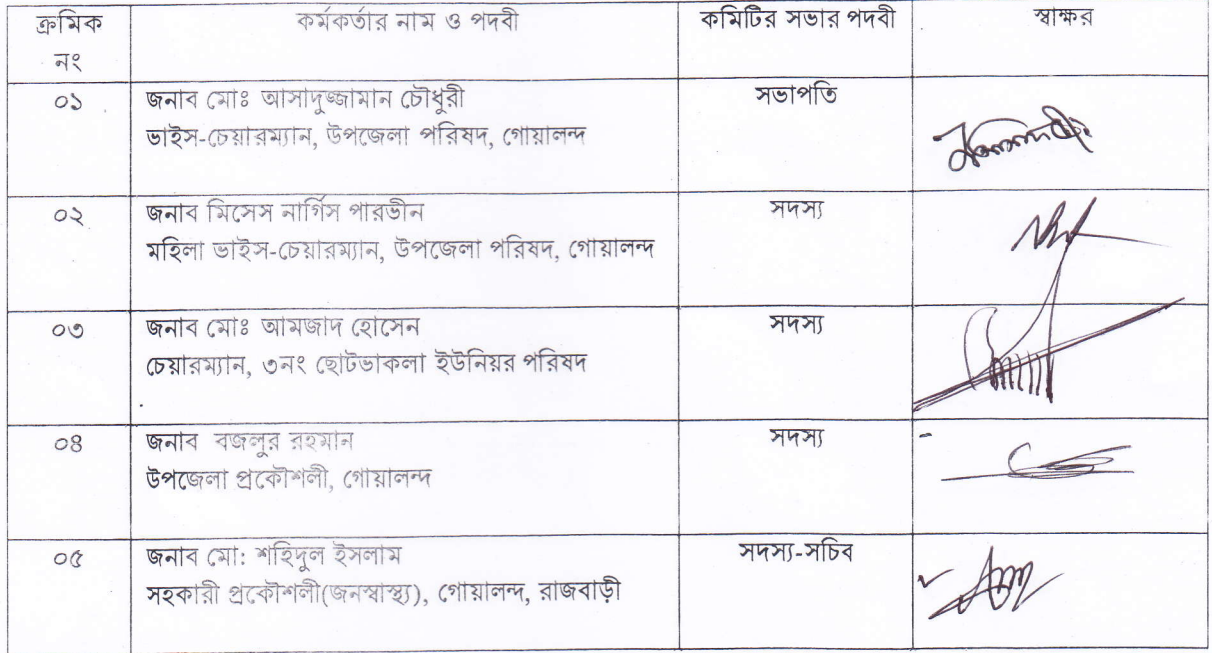 ক্রমিক নং কর্মকর্তার নাম ও পদবী কমিটির সভার পদবী স্বাক্ষর
০১ জনাব মোঃ আসাদুজ্জামান চৌধুরী সভাপতি
ভাইস-চেয়ারম্যান, উপজেলা পরিষদ, গোয়ালন্দ
০২ জনাব মিসেস নার্গিস পারভীন সদস্য
মহিলা ভাইস-চেয়ারম্যান, উপজেলা পরিষদ, গোয়ালন্দ
০৩ জনাব মোঃ আমজাদ হোসেন সদস্য
চেয়ারম্যান, ৩নং ছোটভাকলা ইউনিয়র পরিষদ
০৪ জনাব বজলুর রহমান সদস্য
উপজেলা প্রকৌশলী, গোয়ালন্দ
০৫ জনাব মো: শহিদুল ইসলাম সদস্য-সচিব
সহকারী প্রকৌশলী(জনস্বাস্থ্য), গোয়ালন্দ, রাজবাড়ী